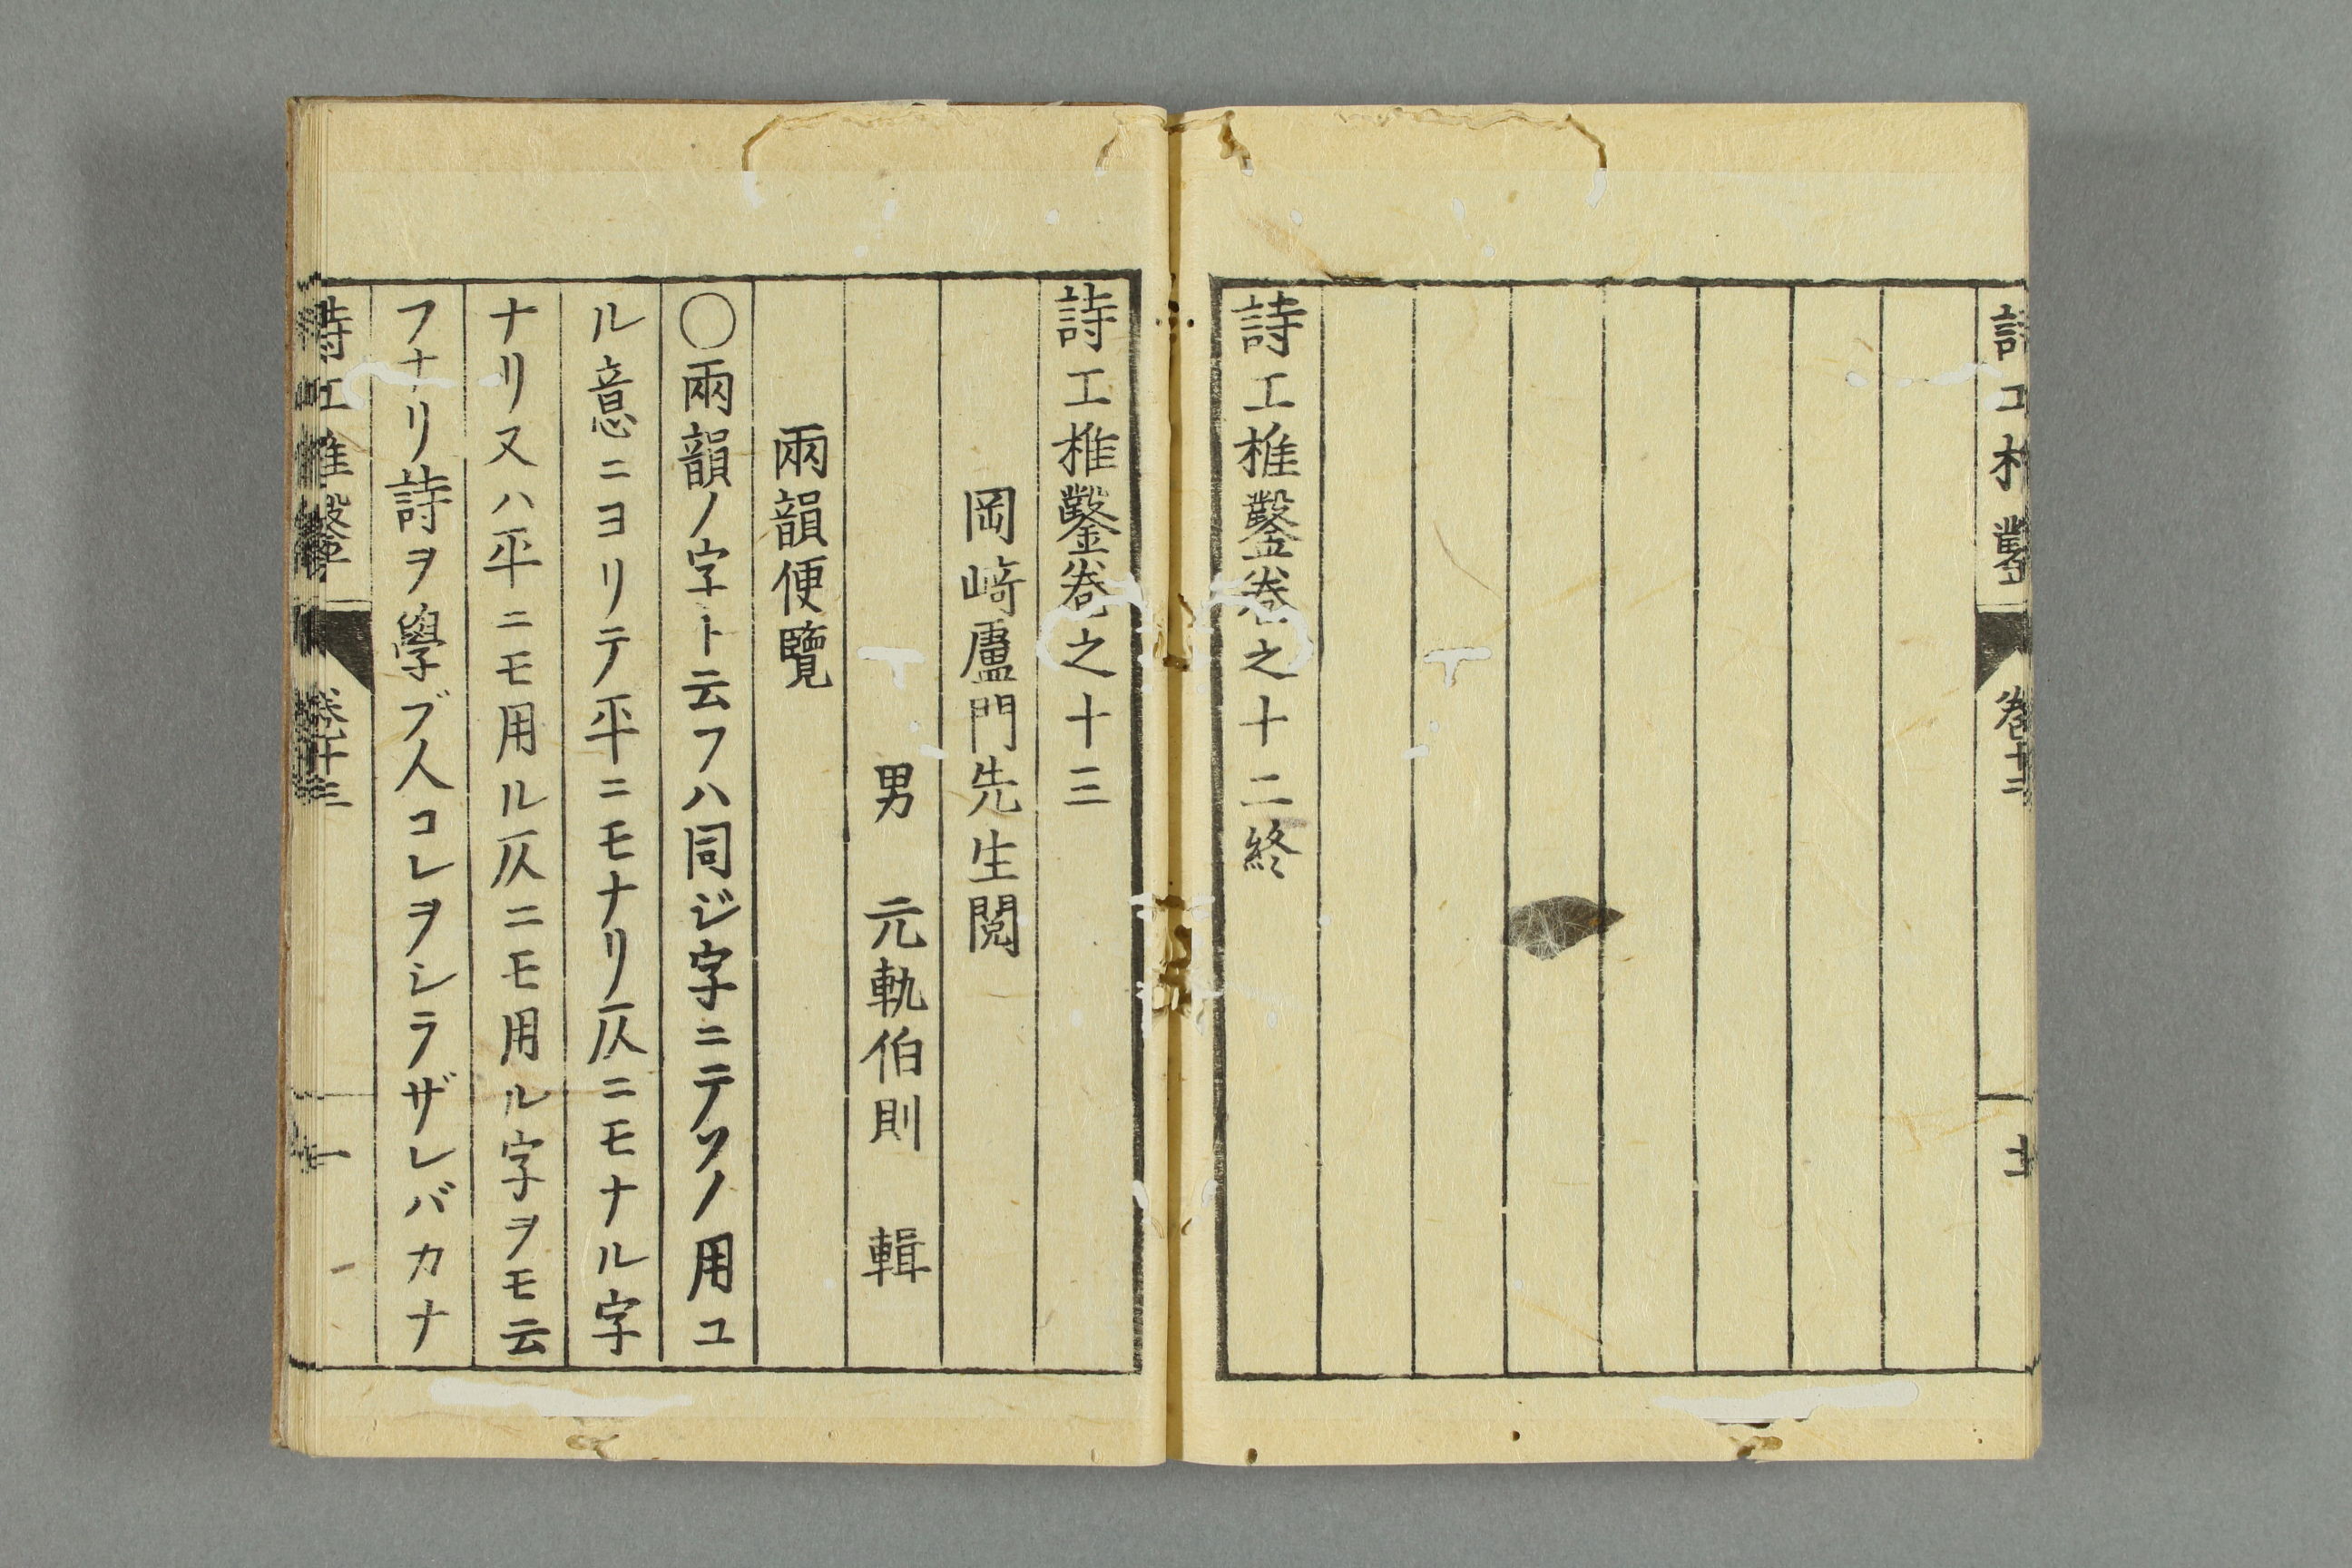 詩工椎鑿
卷十二
詩工椎鑿卷之十二終
詩工椎鑿卷之十三
岡﨑廬門先生閲
男　元軌伯則　輯
兩韻便覽
〇兩韻ノ字ト云フハ同ジ字ニテソノ用ユ
ル意ニヨリテ平ニモナリ仄ニモナル字
ナリ又ハ平ニモ用ル仄ニモ用ル字ヲモ云
フナリ詩ヲ學ブ人コレヲシラザレバカナ
詩工椎鑿
卷十三
一